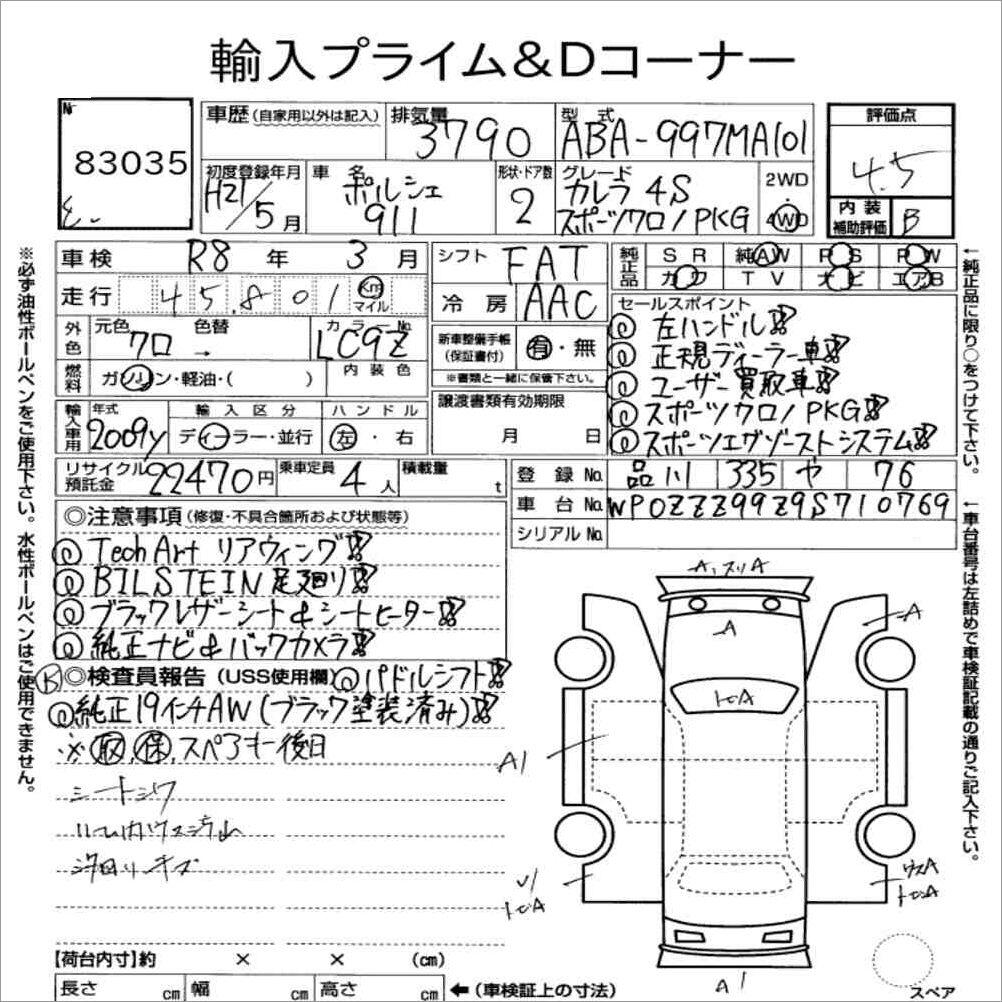 輸入プライム&Dコーナー
No.
83035
車歴 (自家用以外は記入)
排気量 3790
型式 ABA-997MA101
評価点
4.5
初度登録年月 H21/5月
車名 ポルシェ 911
形状・ドア数 2
グレード カレラ 4S スポーツクロノPKG
2WD
4WD
内装補助評価 B
車検 R8年 3月
走行 45,801 Km マイル
シフト FAT
冷房 AAC
純正品
SR 純AW PS PW
カワ TV ナビ エアB
外色
元色 クロ
色替 →
カラーNo. LC9Z
燃料
ガソリン・軽油・( )
内装色
新車整備手帳(保証書付) 有・無
※書類と一緒に保管下さい。
譲渡書類有効期限
月 日
セールスポイント
◎左ハンドル!!
◎正規ディーラー車!!
◎ユーザー買取車!!
◎スポーツクロノPKG!!
◎スポーツエグゾーストシステム!!
輸入車用
年式 2009y
輸入区分 ディーラー・並行
ハンドル 左・右
リサイクル預託金 22470円
乗車定員 4人
積載量 t
登録No. 品川 335 や 76
車台No. WP0ZZZ99Z9S710769
シリアルNo.
◎注意事項 (修復・不具合箇所および状態等)
◎Tech Art リアウィング!!
◎BILSTEIN足廻り!!
◎ブラックレザーシート&シートヒーター!!
◎純正ナビ&バックカメラ!!
◎検査員報告 (USS使用欄) ◎パドルシフト!!
◎純正19インチAW(ブラック塗装済み)!!
※取,保,スペアキー後日
シートシワ
A
A
A
トビA
A1
A1
トビA
トビA
A1
【荷台内寸】約 × × (cm)
長さ cm 幅 cm 高さ cm
←(車検証上の寸法)
スペア
※必ず油性ボールペンをご使用下さい。水性ボールペンはご使用できません。
←純正品に限り○をつけて下さい。
←車台番号は左詰めで車検証記載の通りご記入下さい。